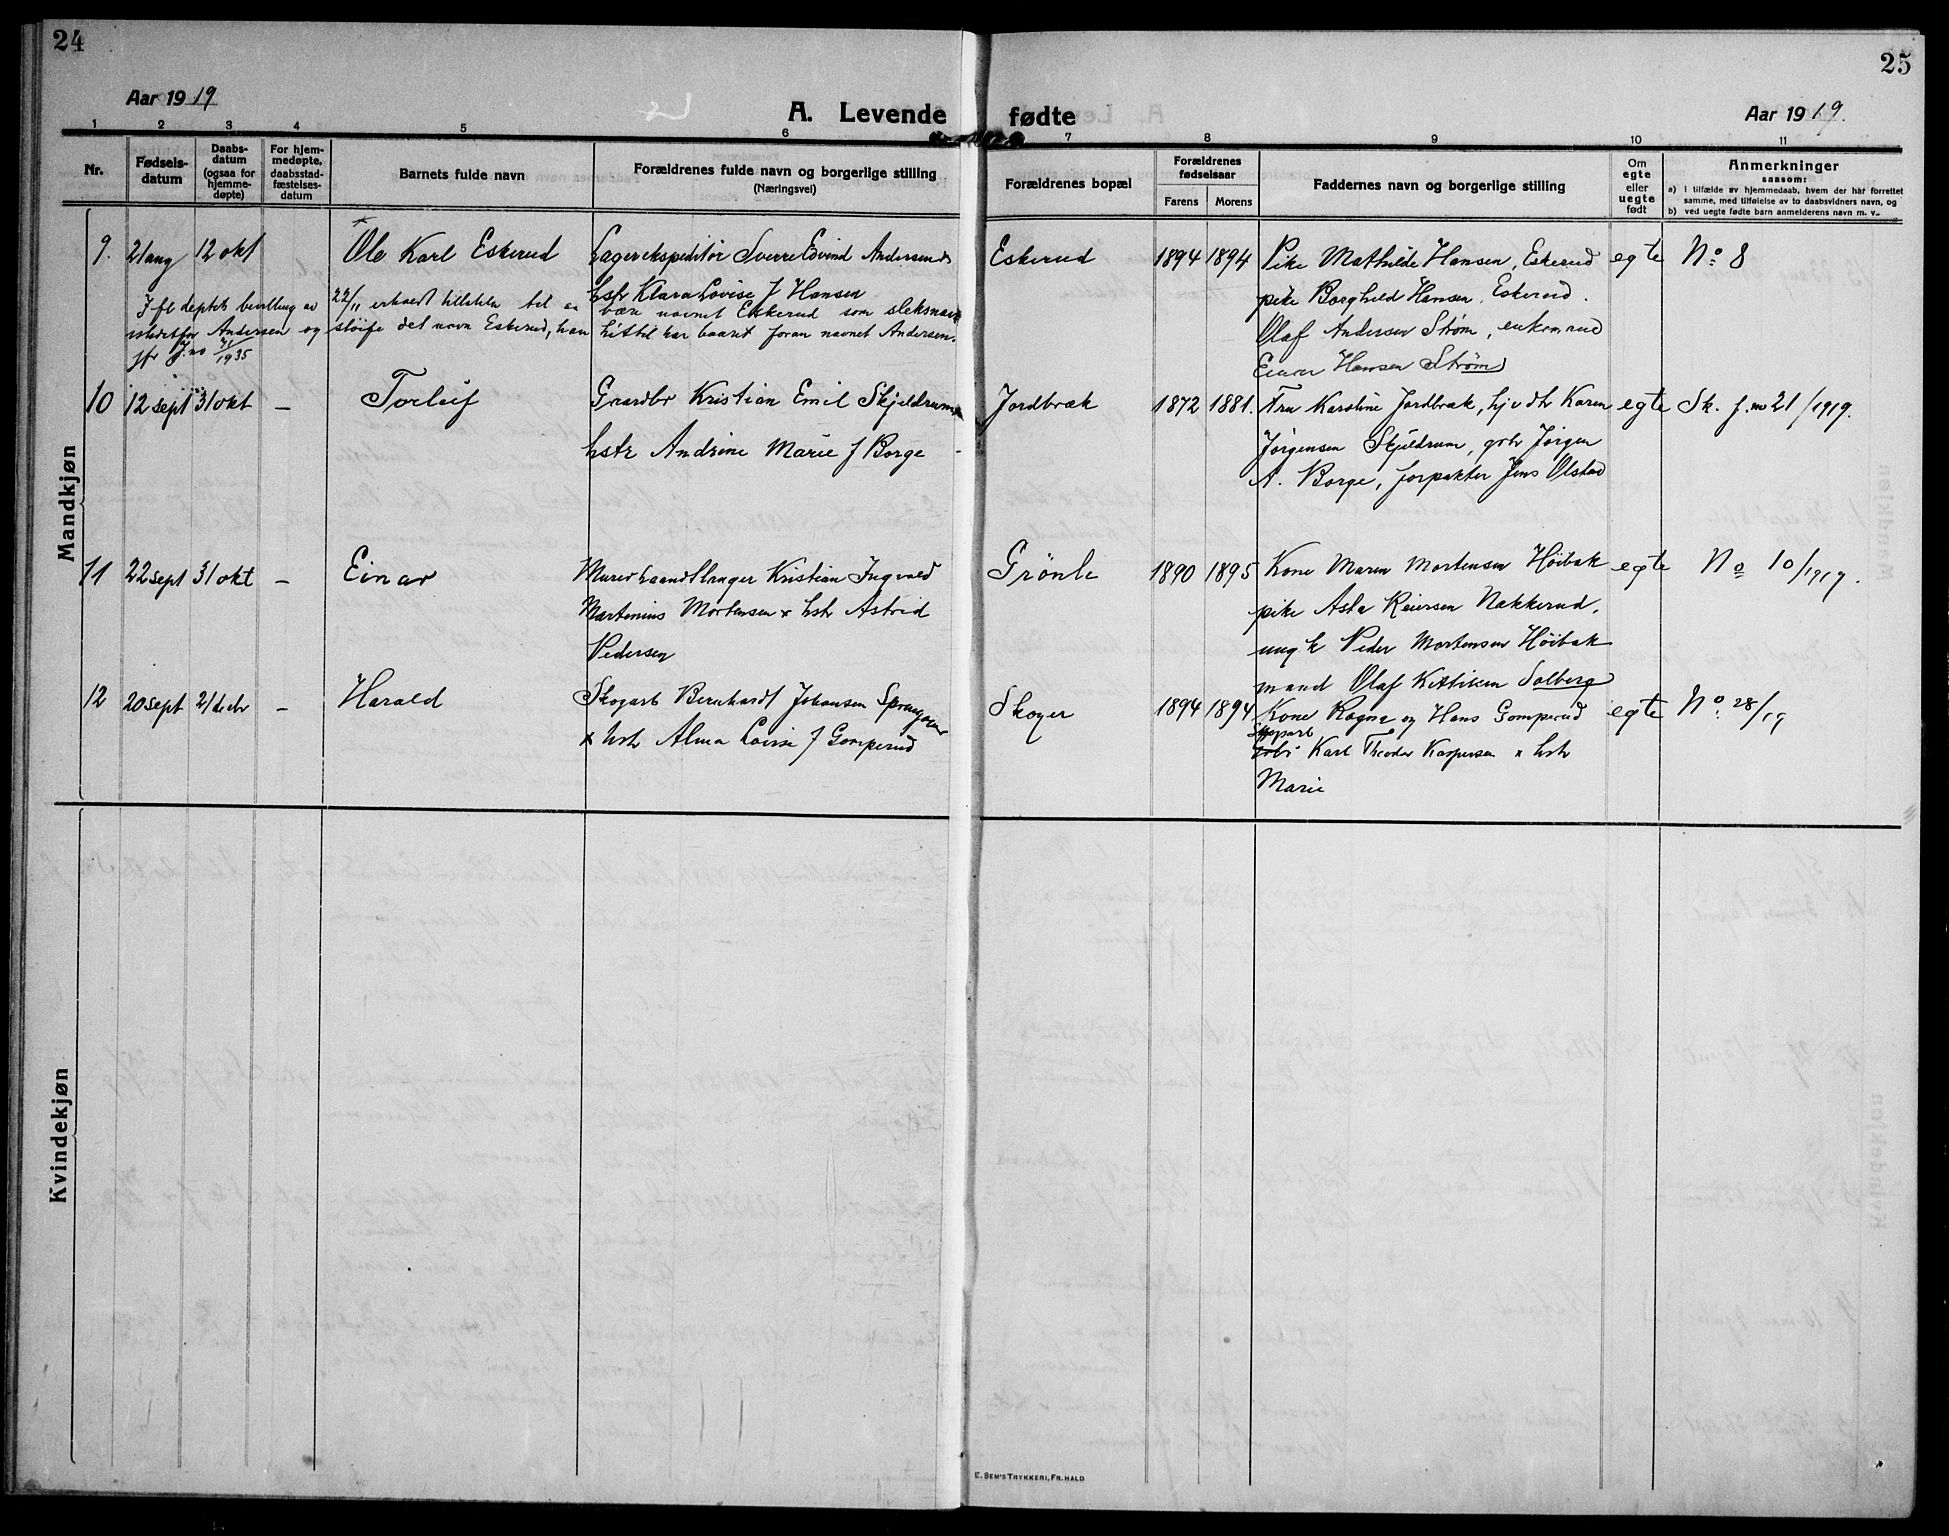 24
25
Aar 1919
A. Levende fødte
Aar 1919.
1 2 3 4 5 6 7 8 9 10 11
Nr.
Fødsels-
datum
Daabs-
datum
(ogsaa for
hjemme-
døpte)
For hjem-
medøpte,
daabsstad-
fæstelses-
datum
Barnets fulde navn
Forældrenes fulde navn og borgerlige stilling
(Næringsvei)
Forældrenes bopæl
Forældrenes
fødselsaar
Farens Morens
Faddernes navn og borgerlige stilling
Om
egte
eller
uegte
født
Anmerkninger
saasom:
a) i tilfælde av hjemmedaab, hvem der har forrettet
samme, med tilføielse av to daabsvidners navn, og
b) ved uegte fødte barn anmelderens navn m. v.
Mandkjøn
9. 21 aug 12 okt Ole Karl Eskerud
Lagerekspeditør Sverre Edvind Andersen
hstr Klara Lovise f Hansen
Eskerud 1894 1894
Pike Mathilde Hansen, Eskerud
pike Borghild Hansen, Eskerud.
Olaf Andersen Strøm, enkem
Einar Hansen Strøm
egte No 8
Ifl deptets bevilling av 22/11 erholdt tillatelse til a
bære navnet Eskerud som sleksnavn
istedetfor Andersen og sløife det navn Eskerud, han
hittil har baaret foran navnet Andersen.
jfr J.no 71/1935
10 12 sept 31 okt – Torleif
Gaardbr Kristian Emil Skjeldrum
hstr Andrine Marie f Borge
Jordbræk 1872 1881.
Fru Karoline Jordbræk, hjv dtr Karen
Jørgensen Skjeldrum, gbr Jørgen
A. Borge, forpakter Jens Olstad
egte Sk. f. no 21/1919.
11 22 sept 31 okt – Einar
Murerhaandlanger Kristian Ingvald
Martinius Mortensen x hstr Astrid
Pedersen
Grönle 1890 1895
Kone Maren Mortensen Höibak
pike Asta Reiersen Nakkerud,
ungk Peder Mortensen Höibak
mand Olaf Kittilsen Solberg
egte No 10/1919.
12 20 sept 21 decbr – Harald
Skogarb Bernhardt Johansen
x hstr Alma Lovise f Gomperud
Skoger 1894 1894
Kone Ragna og Hans Gomperud
Skogarb
Karl Theodor Kaspersen x hstr
Marie
egte No 28/19
Kvindekjøn
E. SEM'S TRYKKERI, FR.HALD